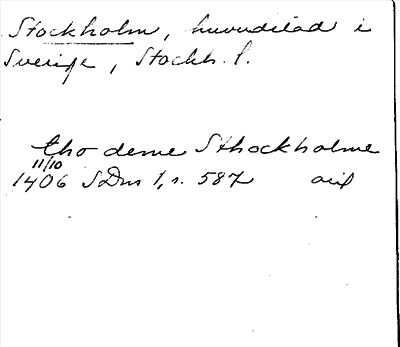 Stockholm, huvudstad i
Sverige, Stockh. l.
tho deme Sthockholme
11/10
1406 SDns 1, s. 587 avskr